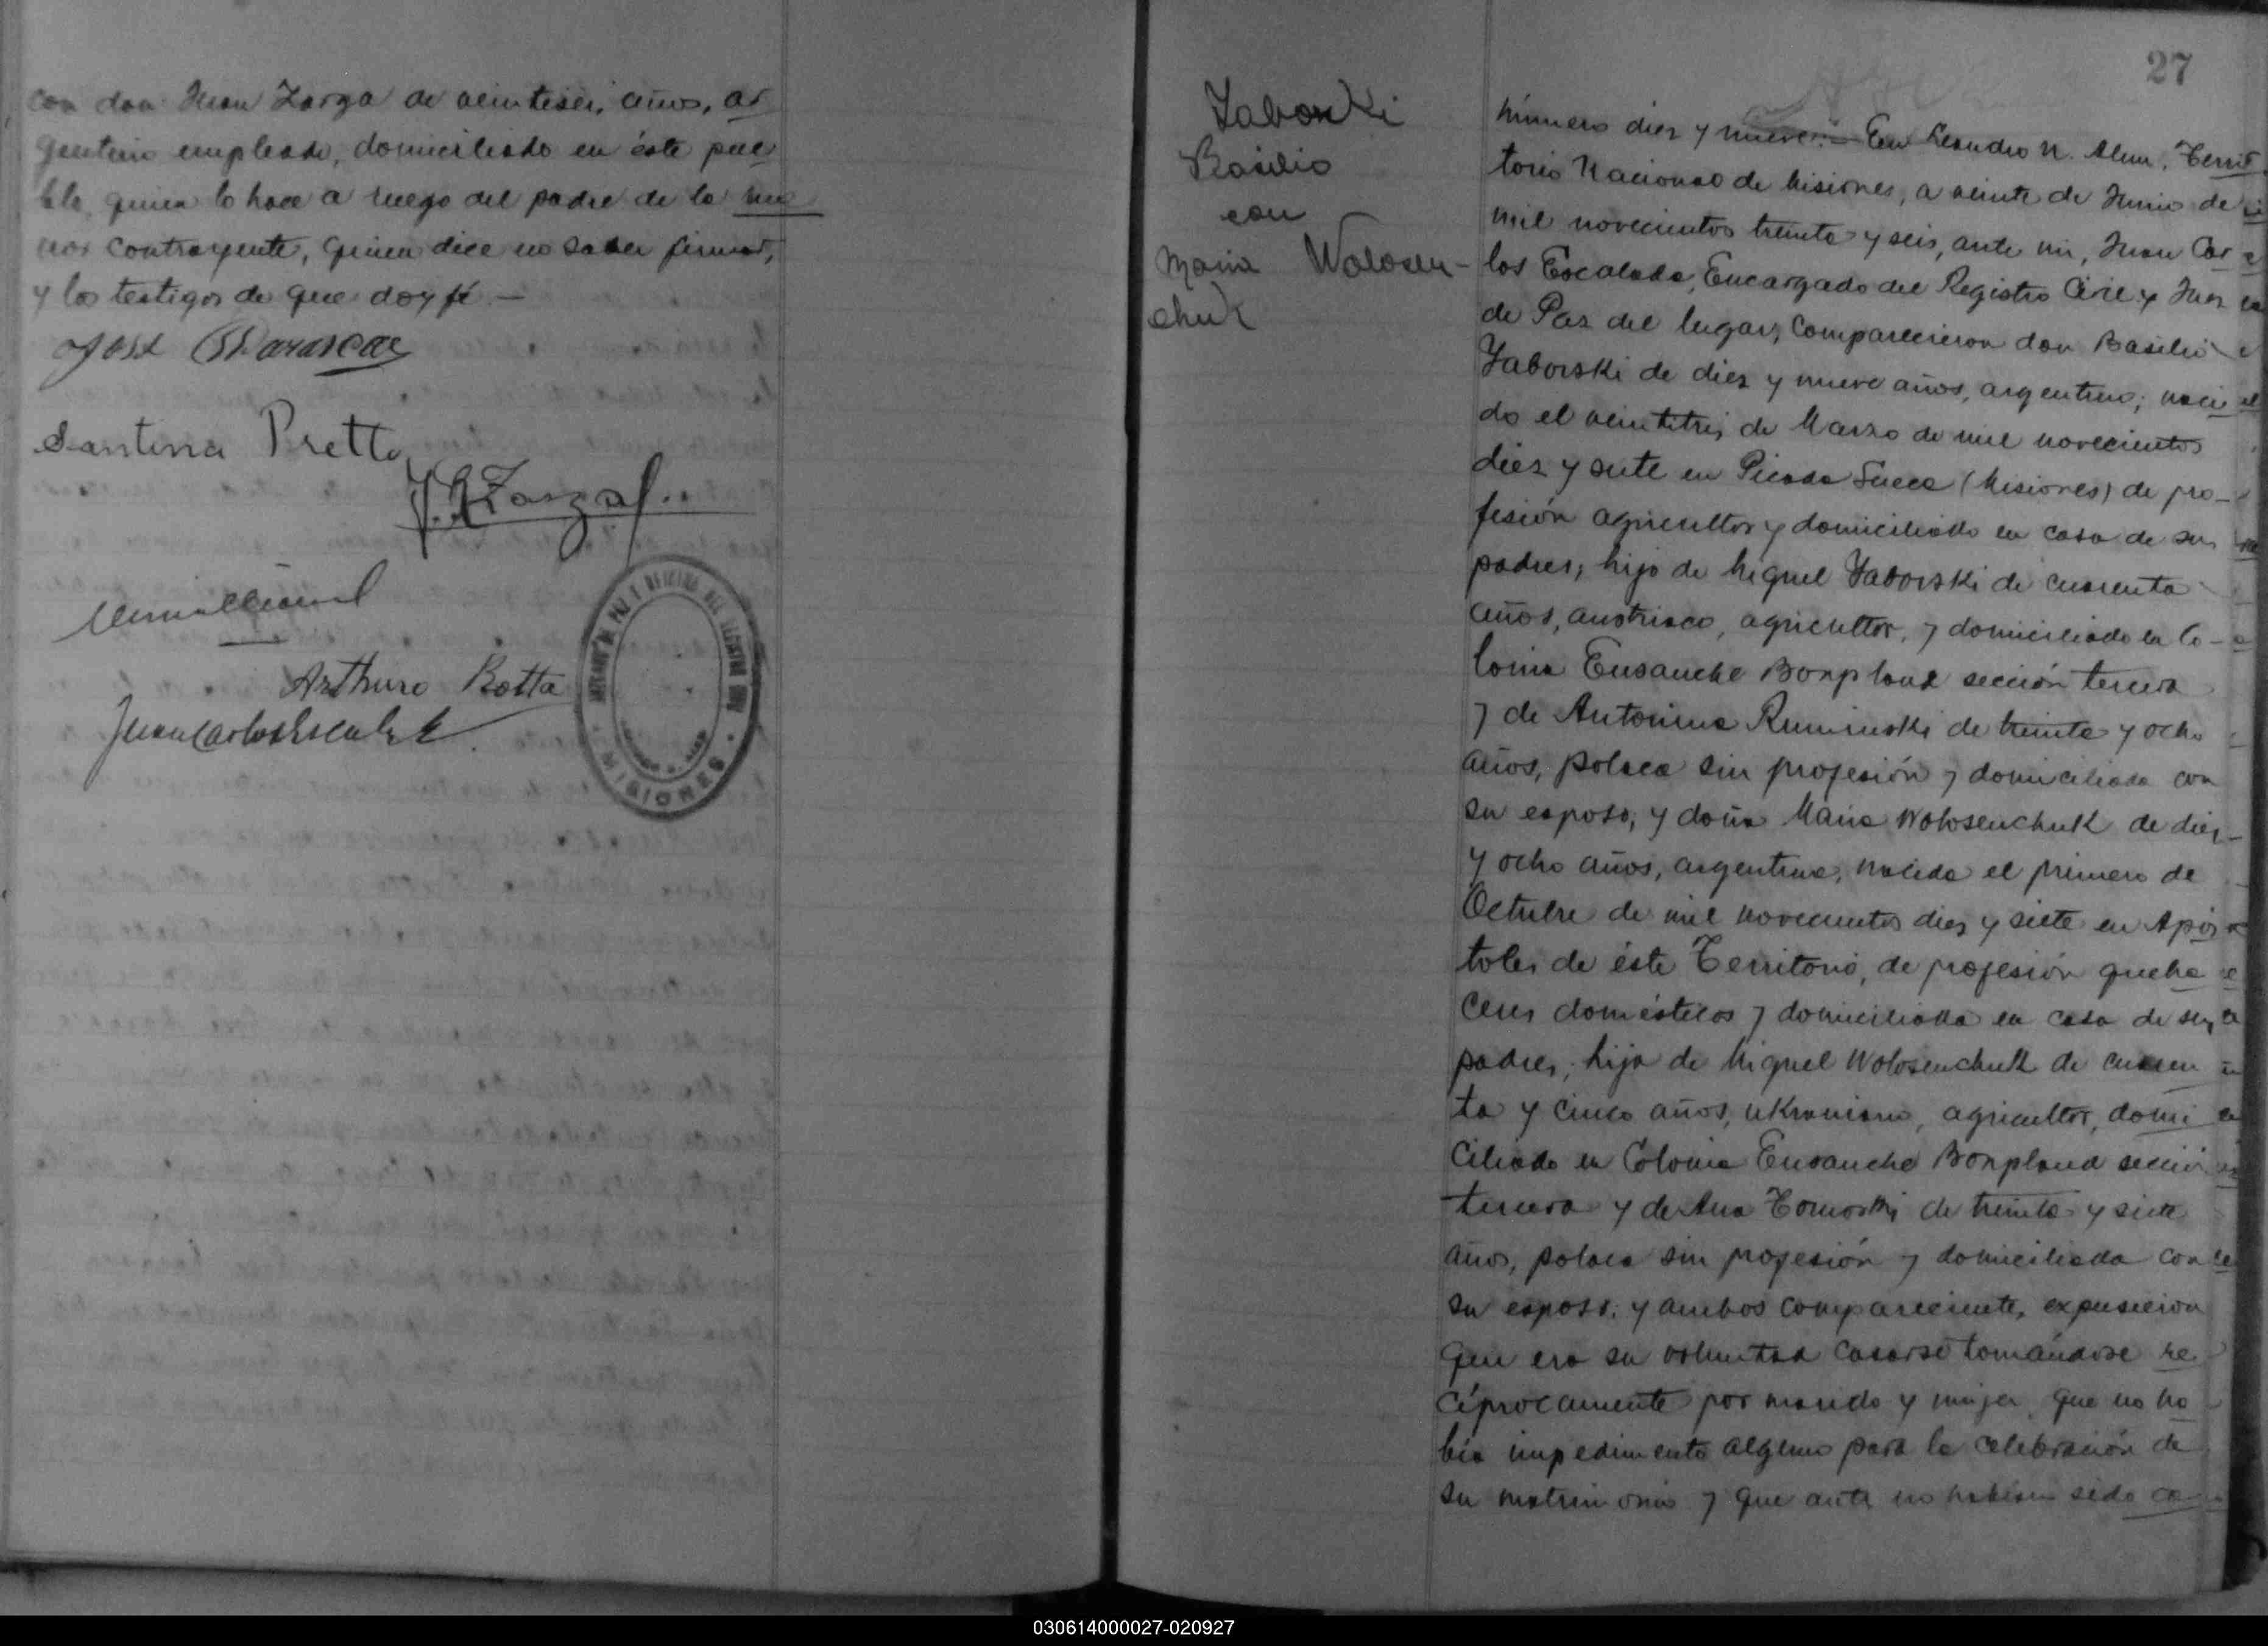 con don Juan Zarza de veintiseis años, ar
gentino empleado, domiciliado en éste pue
blo, quien lo hace a ruego del padre de la me
nor contrayente, quien dice no saber firmar,
y los testigos de que doy fé —
José
Santina Pretto
J. Zarza
Arthuro Botta
Juan Carlos Escalada
MISIONES
27
Yaborski
Basilio
con
Maria Wolosen-
chuk
Número diez y nueve.— En Leandro N. Alem, Terri
torio Nacional de Misiones, a veinte de Junio de
mil novecientos treinta y seis, ante mi, Juan Car
los Escalada, Encargado del Registro Civil y Juez
de Paz del lugar, comparecieron don Basilio
Yaborski de diez y nueve años, argentino; naci
do el veintitrés de Marzo de mil novecientos
diez y siete en Picada Sueca (Misiones) de pro-
fesión agricultor y domiciliado en casa de sus
padres; hijo de Miguel Yaborski de cuarenta
años, austriaco, agricultor, y domiciliado en Co-
lonia Ensanche Bonpland sección tercera
y de Antonina Ruminski de treinta y ocho
años, polaca sin profesión y domiciliada con
su esposo; y doña Maria Wolosenchuk de diez
y ocho años, argentina, nacida el primero de
Octubre de mil novecientos diez y siete en Após
toles de éste Territorio, de profesión queha
ceres domésticos y domiciliada en casa de sus
padres; hija de Miguel Wolosenchuk de cuaren
ta y cinco años, ukraniano, agricultor, domi
ciliado en Colonia Ensanche Bonpland sección
tercera y de Ana Tomorski de treinta y siete
años, polaca sin profesión y domiciliada con
su esposo; y ambos comparecientes, expusieron
que era su voluntad casarse tomándose re
cíprocamente por marido y mujer, que no ha
bía impedimento alguno para la celebración de
su matrimonio y que ante no habían sido ca
030614000027-020927